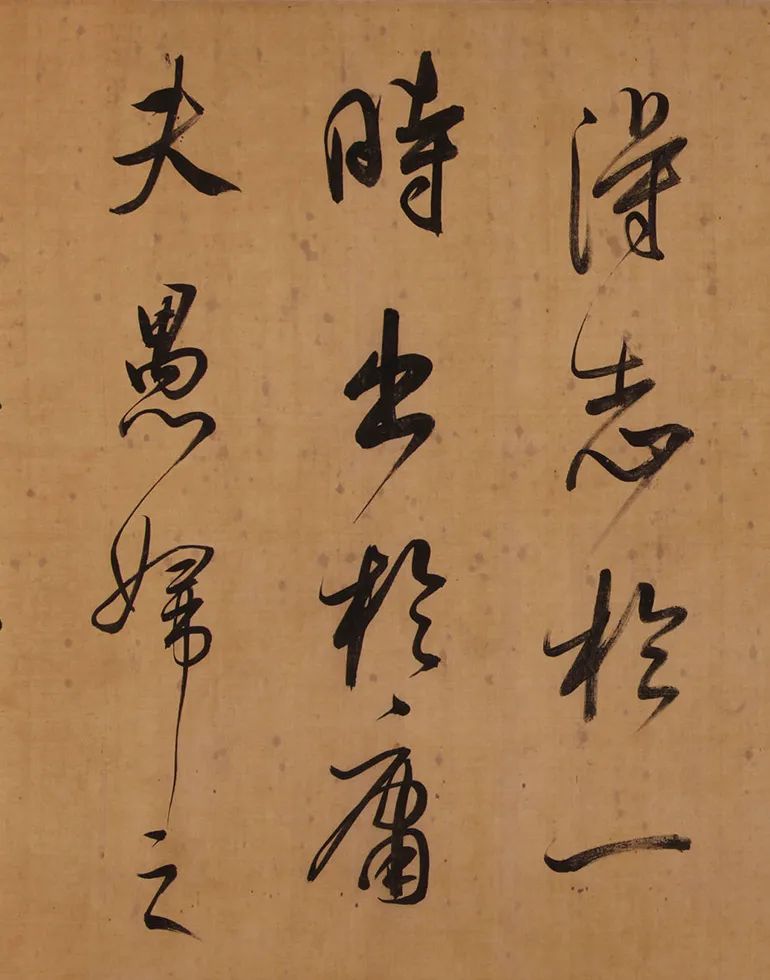 得志於一
時出於庸
夫愚婦之